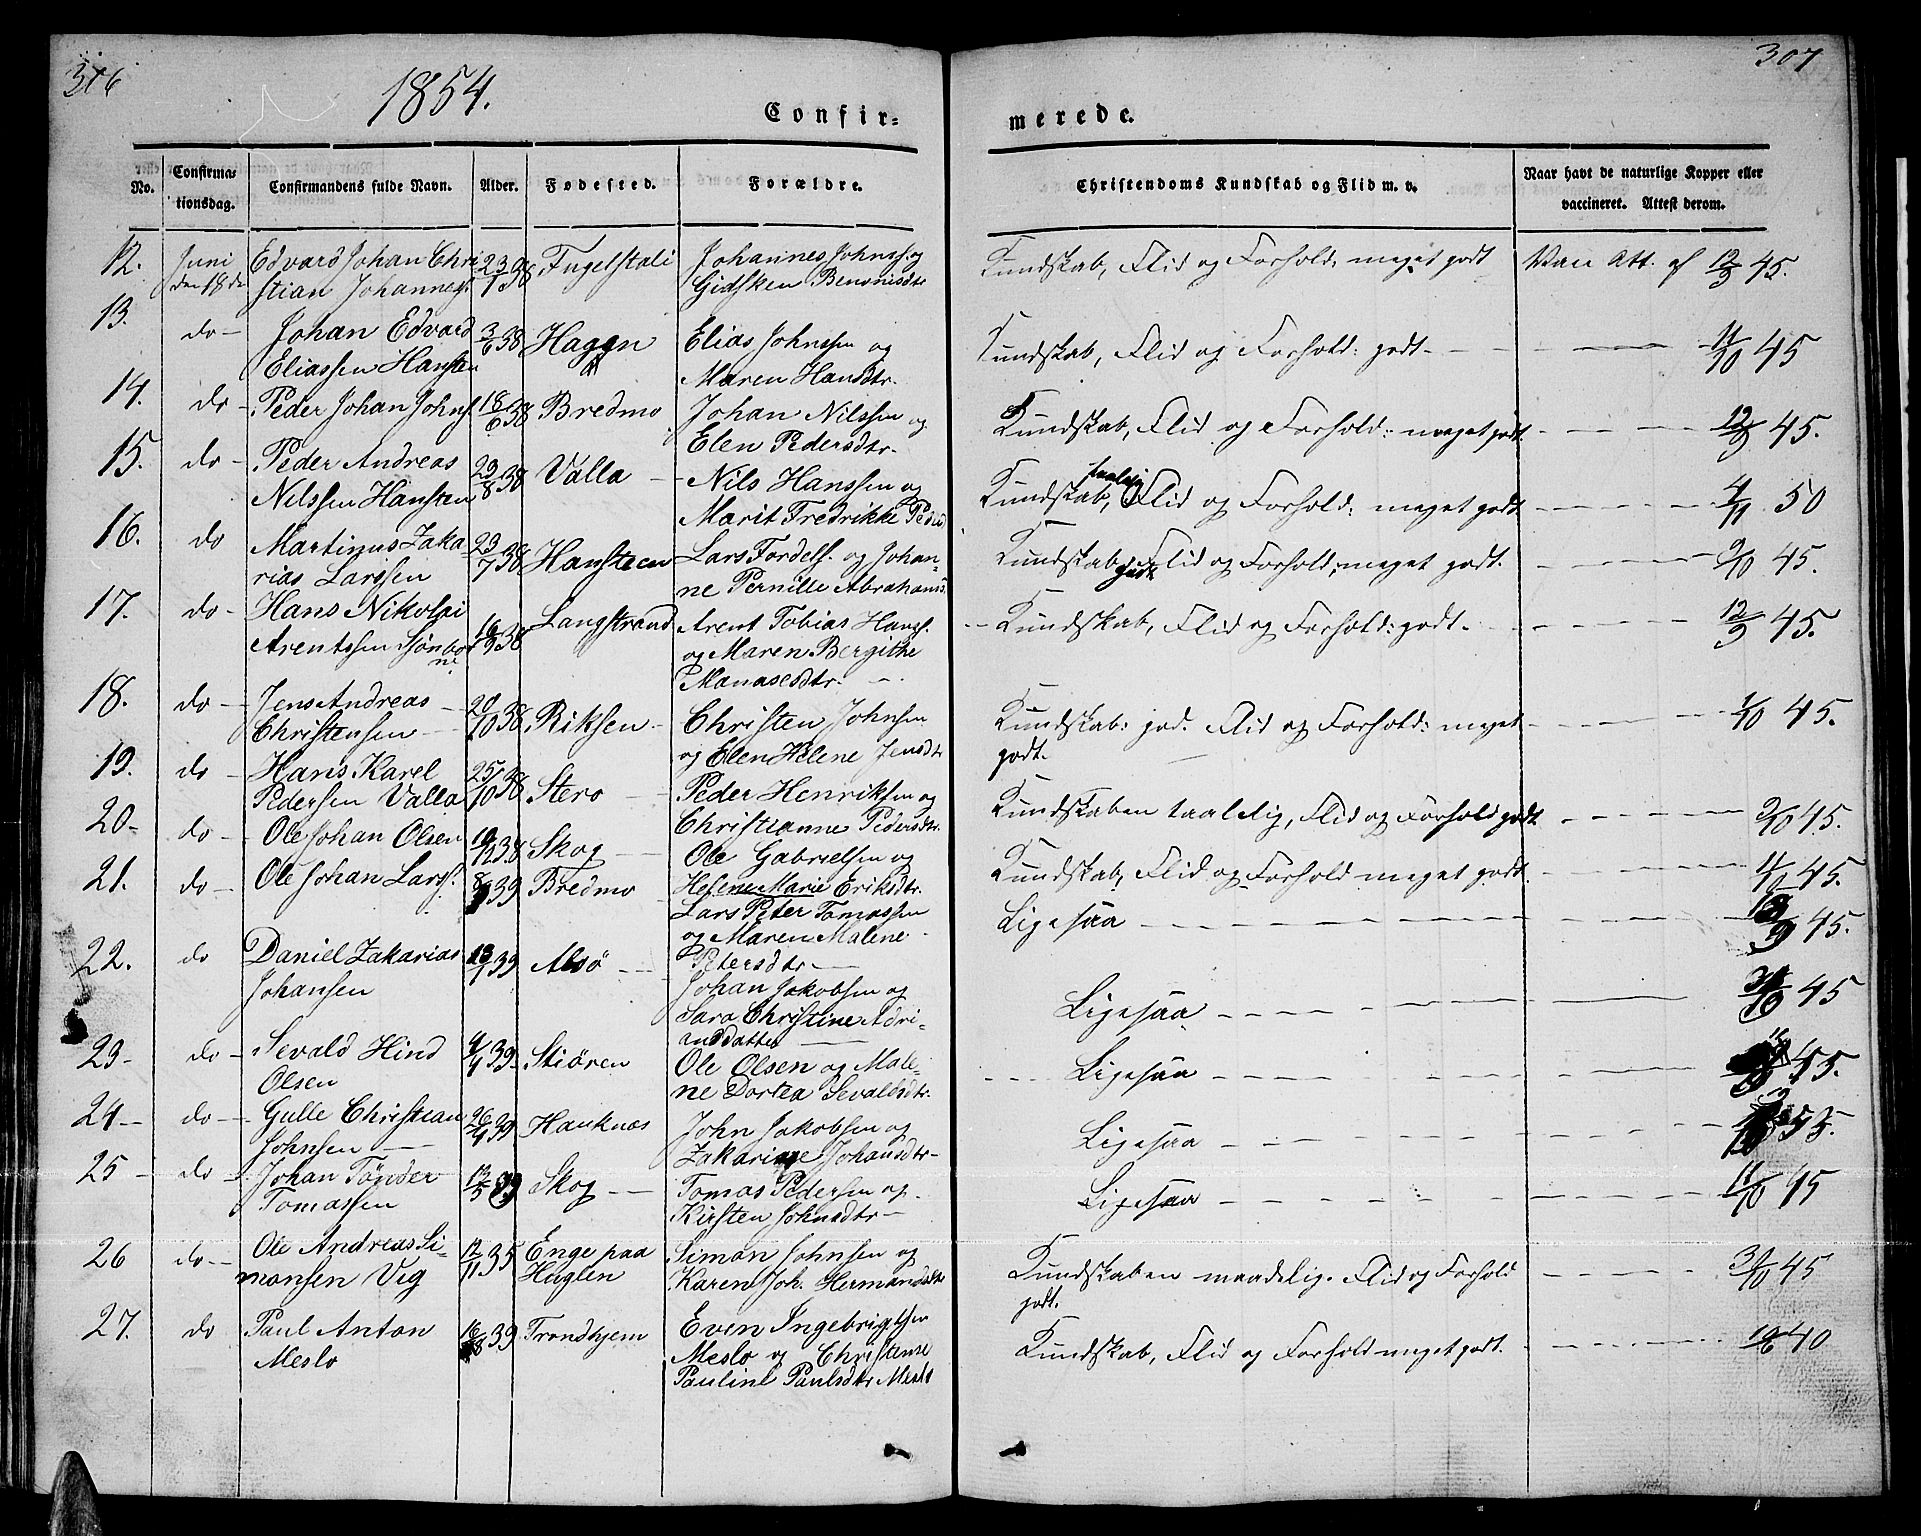 316
1854.
Confir-
merede.
307
No.
Confirma-
tionsdag.
Confirmandens fulde Navn.
Alder.
Fødested.
Forældre.
Christendoms Kundskab og Flid m. v.
Naar havt de naturlige Kopper eller
vaccineret. Attest derom.
12. Juni Edvard Johan Chri 23/1 38 Fugelstali Johannes Johnss. og Kundskab, Flid og Forhold, meget godt Vacc Att. af 12/9 45.
den 18de stian Johannes. Gidsken Benonisdtr
13. do - Johan Edvard 3/6 38 Hagen Elias Johnsen og Kundskab, Flid og Forhold: godt. 11/10 45
Eliassen Hansten Maren Hansdtr.
14. do - Peder Johan Johns. 18/6 38 Bredmo Johan Nilssen og Kundskab, Flid og Forhold: meget godt 12/9 45.
Elen Pedersdtr.
15. do - Peder Andreas 29/8 38 Valla Nils Hanssen og Kundskab, taalelig Flid og Forhold: meget godt 4/11 50
Nilssen Hansten Marit Fredrikke Peders
16. do Martinus Zaka 23/7 38 Hansteen Lars Tordels. og Johan- Kundskab godt Flid og Forhold, meget godt. 9/10 45.
rias Larssen ne Pernille Abrahams
17. do - Hans Nikolai 16/9 38 Langstrand Arent Tobias Hanss. Kundskab, Flid og Forhold: godt. 12/9 45.
Arentssen Sjönbo og Maren Bergithe
Manasesdtr.
18. do - Jens Andreas 20/10 38 Riksen Christen Johnsen Kundskab: god. Flid og Forhold: meget 1/10 45.
Christensen og Elen Helene Jensdtr godt.
19. do - Hans Karel 25/10 38 Stero Peder Henriksen og Kundskaben taalelig, Flid og Forhold godt 9/10 45.
Pedersen Valla Christianne Pedersdtr.
20- do - Ole Johan Olsen 19/12 38 Skog Ole Gabrielsen og Kundskab, Flid og Forhold meget godt. 11/10 45.
Helene Marie Eriksdtr.
21. do - Ole Johan Larss. 39 Bredmo Lars Peter Tomassen Ligesaa 45.
og Maren Malene
Petersdtr
22. do Daniel Zakarias 13/1 39 Alsö Johan Jakobsen og Ligesaa 45
Johansen Sara Christine Adri-
ansdatter
23- do - Sevald Hind 4/4 39- Stiören Ole Olsen og Male- Ligesaa 45.
Olsen ne Dortea Sevaldsdtr.
24- do - Gulle Christian 26/4 39 Hauknæs John Jakobsen og Ligesaa 55.
Johnsen Zakarine Johansdtr-
25 - do - Johan Tönder 12/5 39 Skog Tomas Pedersen og Ligesaa 11/10 45
Tomassen Kirsten Johnsdtr-
26 do- Ole Andreas Si- 12/11 35 Enge paa Simon Johnsen og Kundskaben maadelig. Flid og Forhold 45
monsen Vig Huglen Karen Joh. Hermansdtr godt.
27. do Paul Anton 16/8 39 Trondhjem Even Ingebrigtsen Kundskab, Flid og Forhold meget godt. 40
Meslo Meslo og Christense
Pauline Paulsdtr Meslo